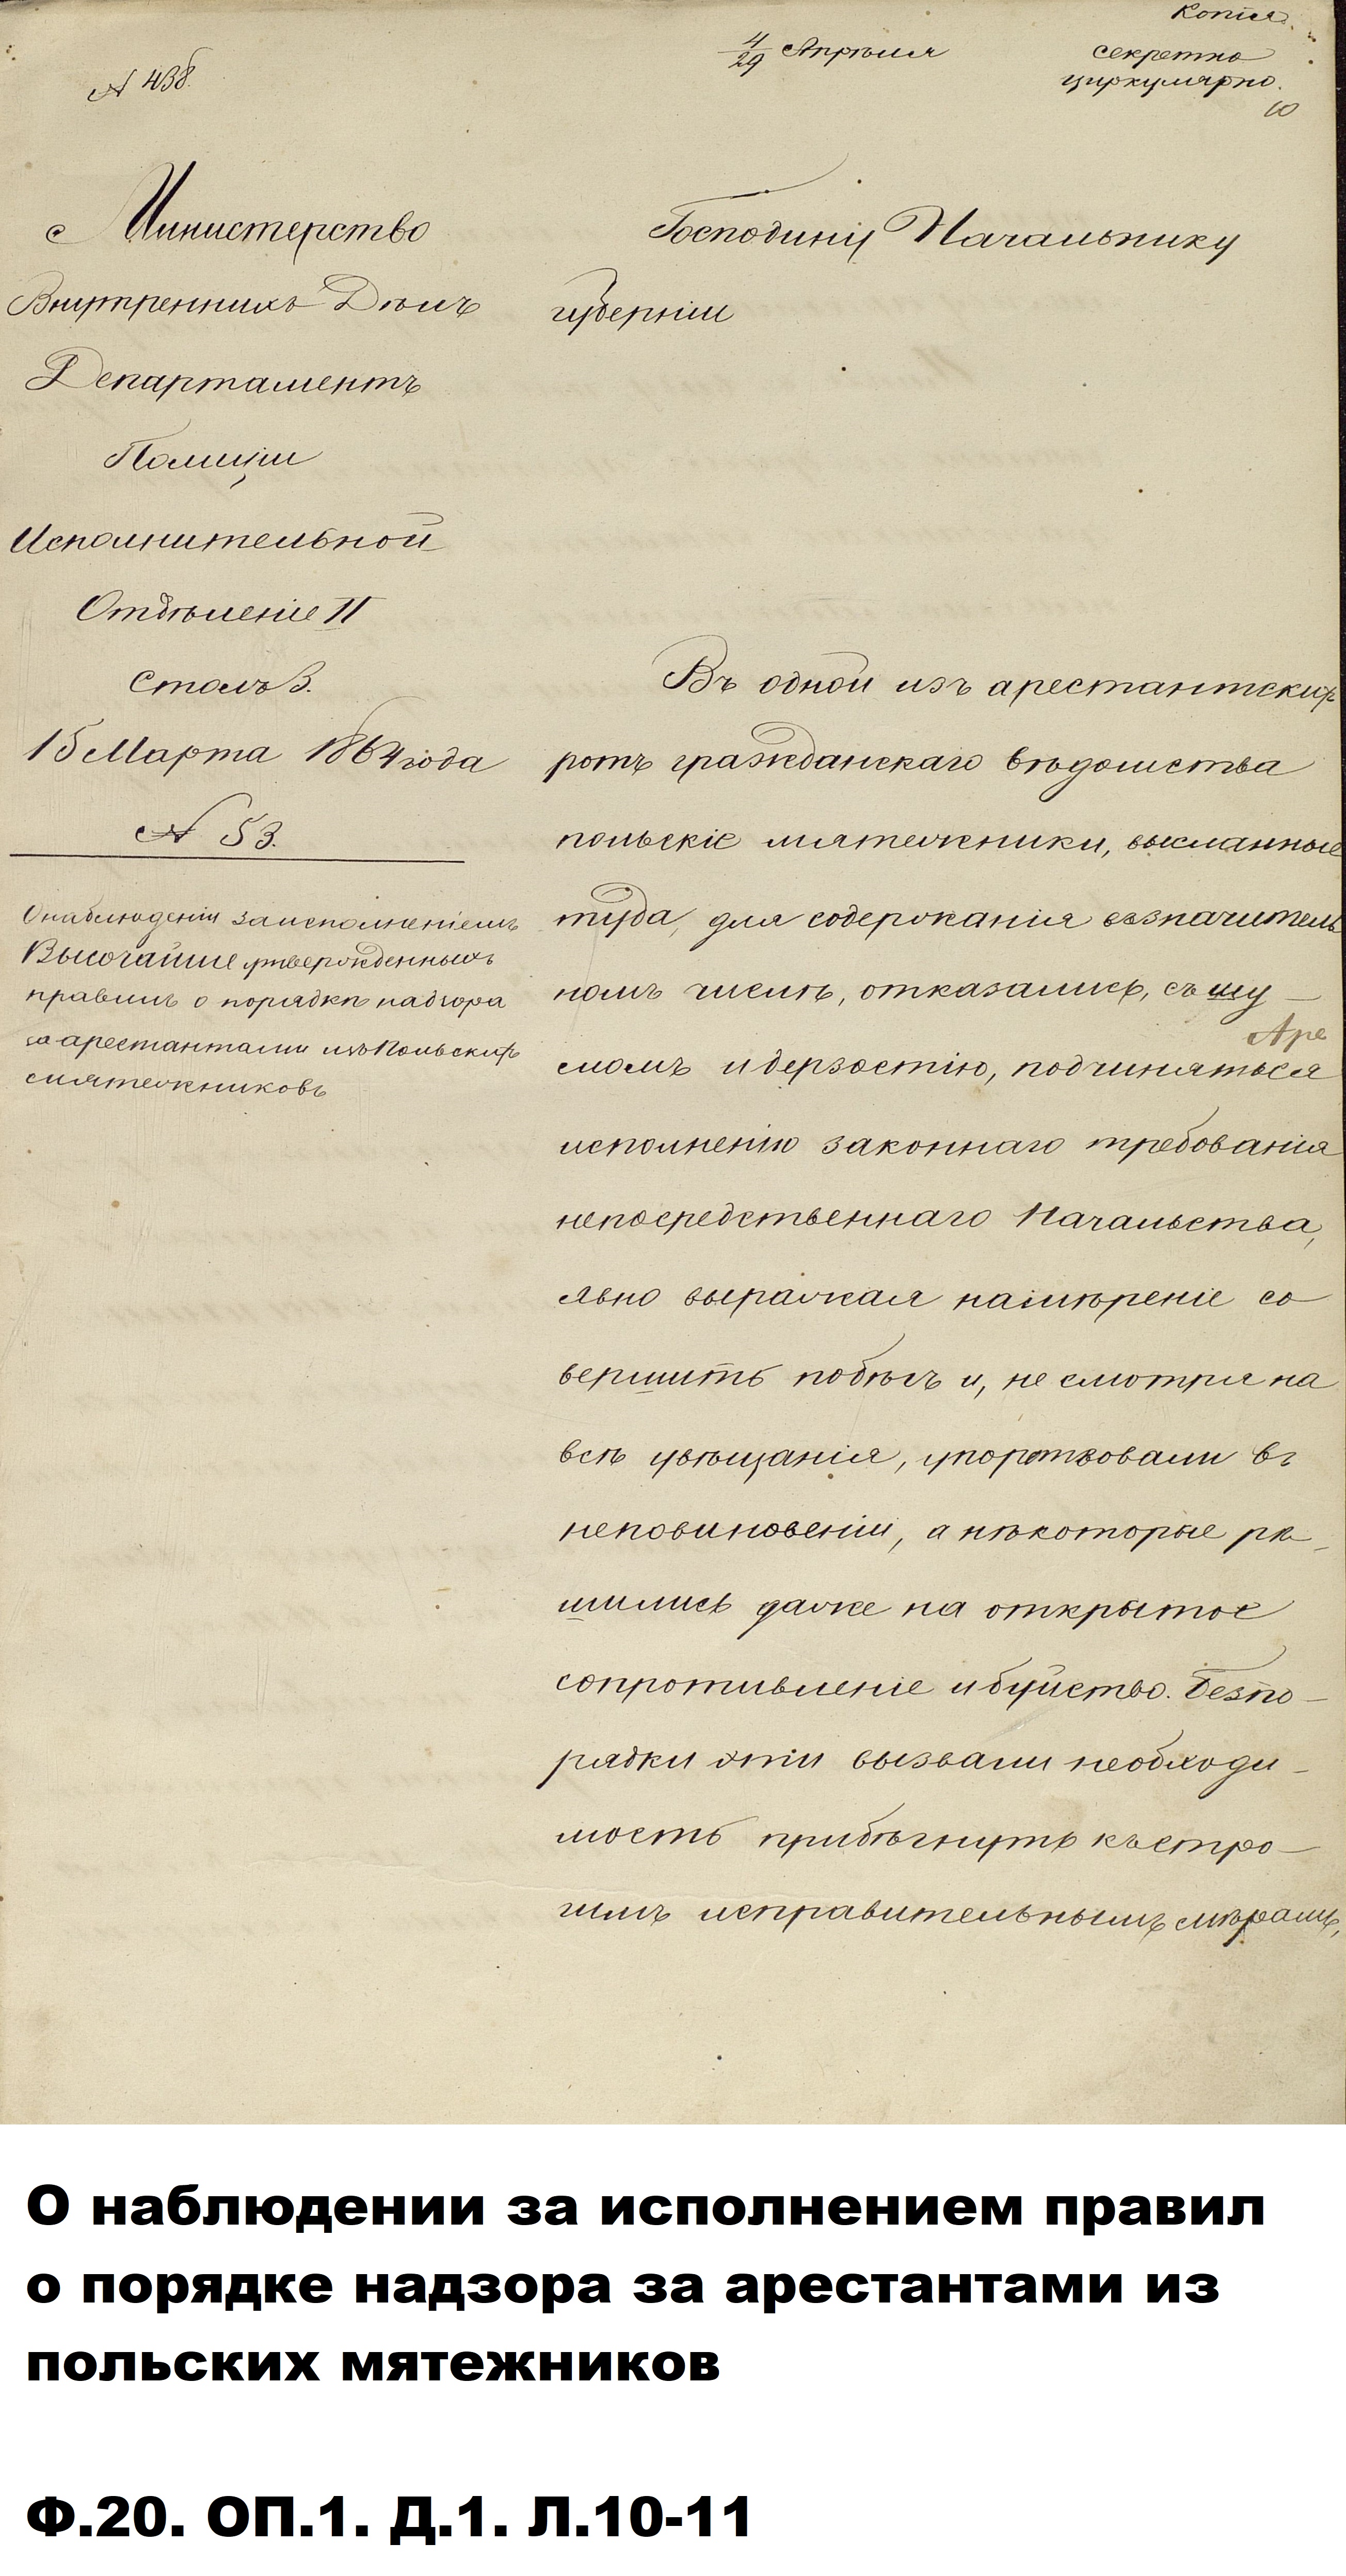 Копія
4/29 Апрѣля
секретно
циркулярно.
10
№ 438.
Министерство
Внутреннихъ Дѣлъ
Департаментъ
Полиціи
Исполнительной
Отдѣленіе II
Столъ 3.
15 Марта 1864 года
№ 53.
О наблюденіи за исполненіемъ
Высочайше утвержденныхъ
правилъ о порядкѣ надзора
за арестантами изъ Польскихъ
мятежниковъ
Господину Начальнику
губерніи
Въ одной изъ арестантскихъ
ротъ гражданскаго вѣдомства
польскіе мятежники, высланные
туда, для содержанія въ значитель
номъ числѣ, отказались, съ шу
Аре
момъ и дерзостію, подчиняться
исполненію законнаго требованія
непосредственнаго Начальства,
явно выражая намѣреніе со
вершить побѣгъ и, не смотря на
всѣ увѣщанія, упорствовали въ
неповиновеніи, а нѣкоторые рѣ-
шились даже на открытое
сопротивленіе и буйство. Безпо-
рядки эти вызвали необходи-
мость прибѣгнуть къ стро-
гимъ исправительнымъ мѣрамъ,
О наблюдении за исполнением правил
о порядке надзора за арестантами из
польских мятежников
Ф.20. ОП.1. Д.1. Л.10-11